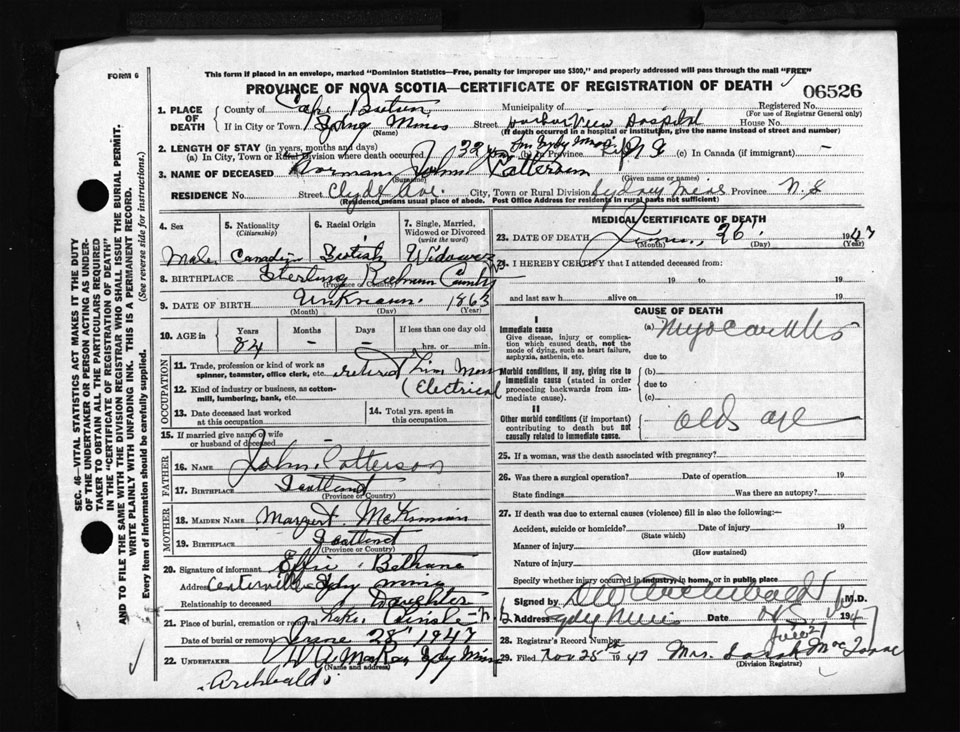 FORM 6
This form if placed in an envelope, marked "Dominion Statistics—Free, penalty for improper use $300," and properly addressed will pass through the mail "FREE"
PROVINCE OF NOVA SCOTIA—CERTIFICATE OF REGISTRATION OF DEATH 06526
1. PLACE OF DEATH County of Cape Breton Municipality of Registered No. (For use of Registrar General only)
If in City or Town Sydney Mines (Name) Street Harbor View Hospital House No.
(If death occurred in a hospital or institution, give the name instead of street and number)
2. LENGTH OF STAY (in years, months and days)
(a) In City, Town or Rural Division where death occurred 32 yrs (b) In Province (c) In Canada (if immigrant) —
3. NAME OF DECEASED Norman John Patterson
(Surname) (Given name or names)
RESIDENCE No. Street Clyde Ave. City, Town or Rural Division Sydney Mines Province N.S
(Residence means usual place of abode. Post Office Address for residents in rural parts not sufficient)
4. Sex 5. Nationality (Citizenship) 6. Racial Origin 7. Single, Married, Widowed or Divorced (write the word)
Male Canadian Scotish Widower
8. BIRTHPLACE Sterling Richmond County N.S
(Province or Country)
9. DATE OF BIRTH Unknown. 1863
(Month) (Day) (Year)
10. AGE in Years Months Days If less than one day old
84 — — hrs. or min.
OCCUPATION
11. Trade, profession or kind of work as spinner, teamster, office clerk, etc. retired
12. Kind of industry or business, as cotton-mill, lumbering, bank, etc. (Electrical
13. Date deceased last worked at this occupation
14. Total yrs. spent in this occupation
15. If married give name of wife or husband of deceased
FATHER
16. NAME John Patterson
17. BIRTHPLACE Scotland
(Province or Country)
MOTHER
18. MAIDEN NAME Margert McKinnian
19. BIRTHPLACE Scotland
(Province or Country)
20. Signature of informant Effie Bethune
Address Centerville Sydy Mines
Relationship to deceased Daughter
21. Place of burial, cremation or removal Lake
Date of burial or removal June 28 1947
22. UNDERTAKER W A Sydy Mines
(Name and address)
Archibald
MEDICAL CERTIFICATE OF DEATH
23. DATE OF DEATH June, 26 1947
(Month) (Day) (Year)
24. I HEREBY CERTIFY that I attended deceased from:
19 to 19
and last saw h alive on 19
CAUSE OF DEATH
I
Immediate cause (a) Myocarditis
Give disease, injury or complication which caused death, not the mode of dying, such as heart failure, asphyxia, asthenia, etc. due to
Morbid conditions, if any, giving rise to immediate cause (stated in order proceeding backwards from immediate). (b) due to (c)
II
Other morbid conditions (if important) contributing to death but not causally related to immediate cause. old age
25. If a woman, was the death associated with pregnancy?
26. Was there a surgical operation? Date of operation 19
State findings Was there an autopsy?
27. If death was due to external causes (violence) fill in also the following:—
Accident, suicide or homicide? Date of injury 19
(State which)
Manner of injury
(How sustained)
Nature of injury
Specify whether injury occurred in industry, in home, or in public place
Signed by Archibald M.D.
Address Sydy Mines Date 1947
28. Registrar's Record Number
29. Filed Nov 25th 1947 Mrs. Sarah MacIsaac
(Division Registrar)
SEC. 46—VITAL STATISTICS ACT MAKES IT THE DUTY
OF THE UNDERTAKER OR PERSON ACTING AS UNDER-
TAKER TO OBTAIN ALL THE PARTICULARS REQUIRED
IN THE "CERTIFICATE OF REGISTRATION OF DEATH"
AND TO FILE THE SAME WITH THE DIVISION REGISTRAR WHO SHALL ISSUE THE BURIAL PERMIT.
WRITE PLAINLY WITH UNFADING INK. THIS IS A PERMANENT RECORD.
Every item of information should be carefully supplied. (See reverse side for instructions.)